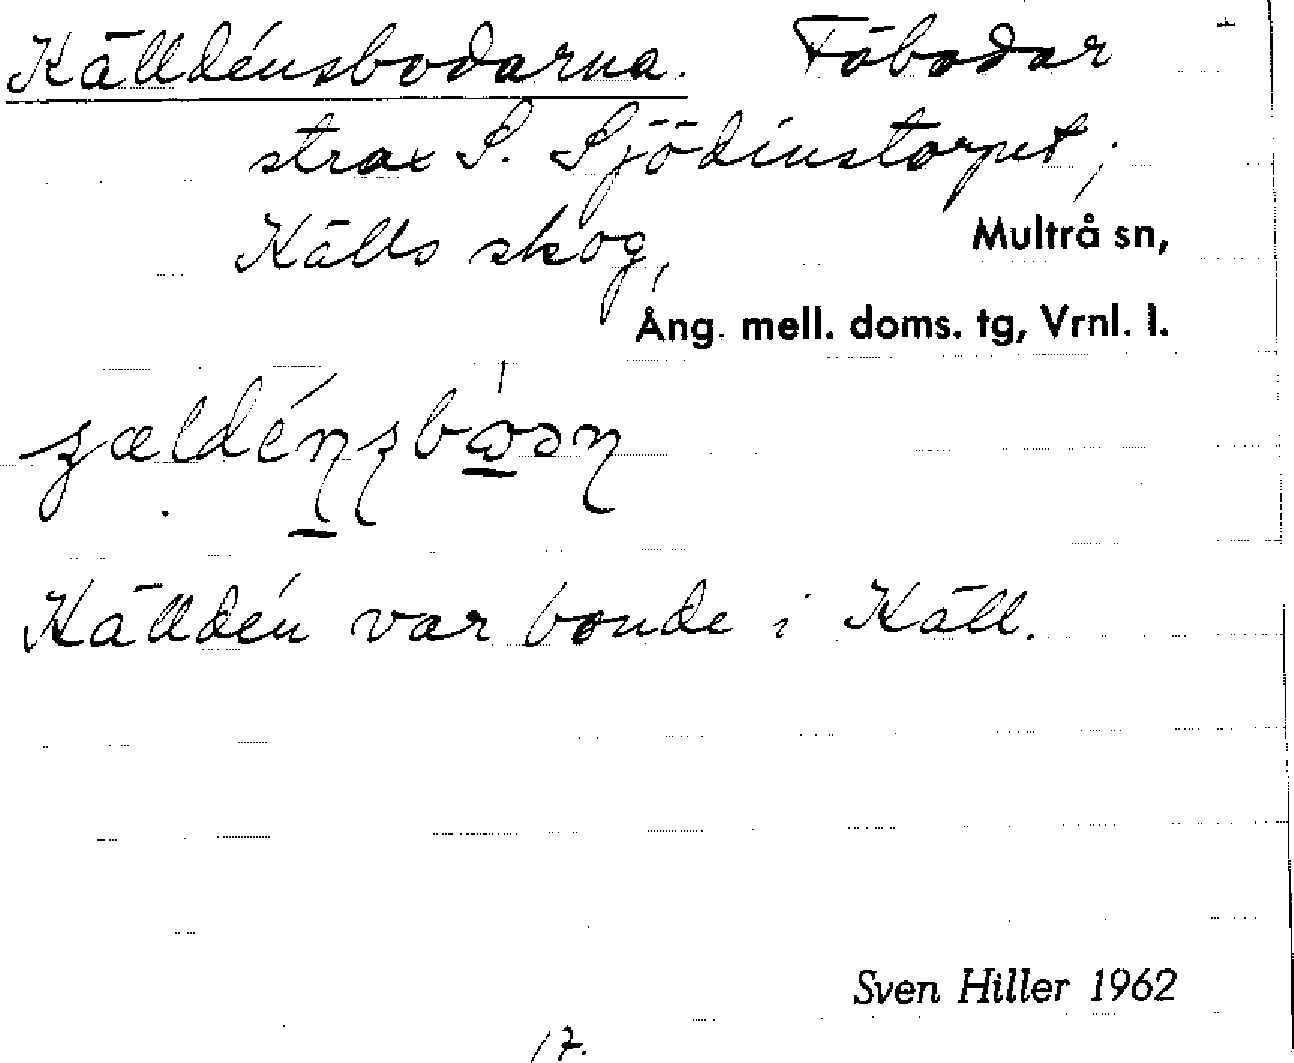 Källdénsbodarna. Fäbodar
strax S. Sjödinstorpet;
Källs skog,
Multrå sn,
Ång. mell. doms. tg, Vrnl. l.
Källdén var bonde i Käll.
Sven Hiller 1962
17.